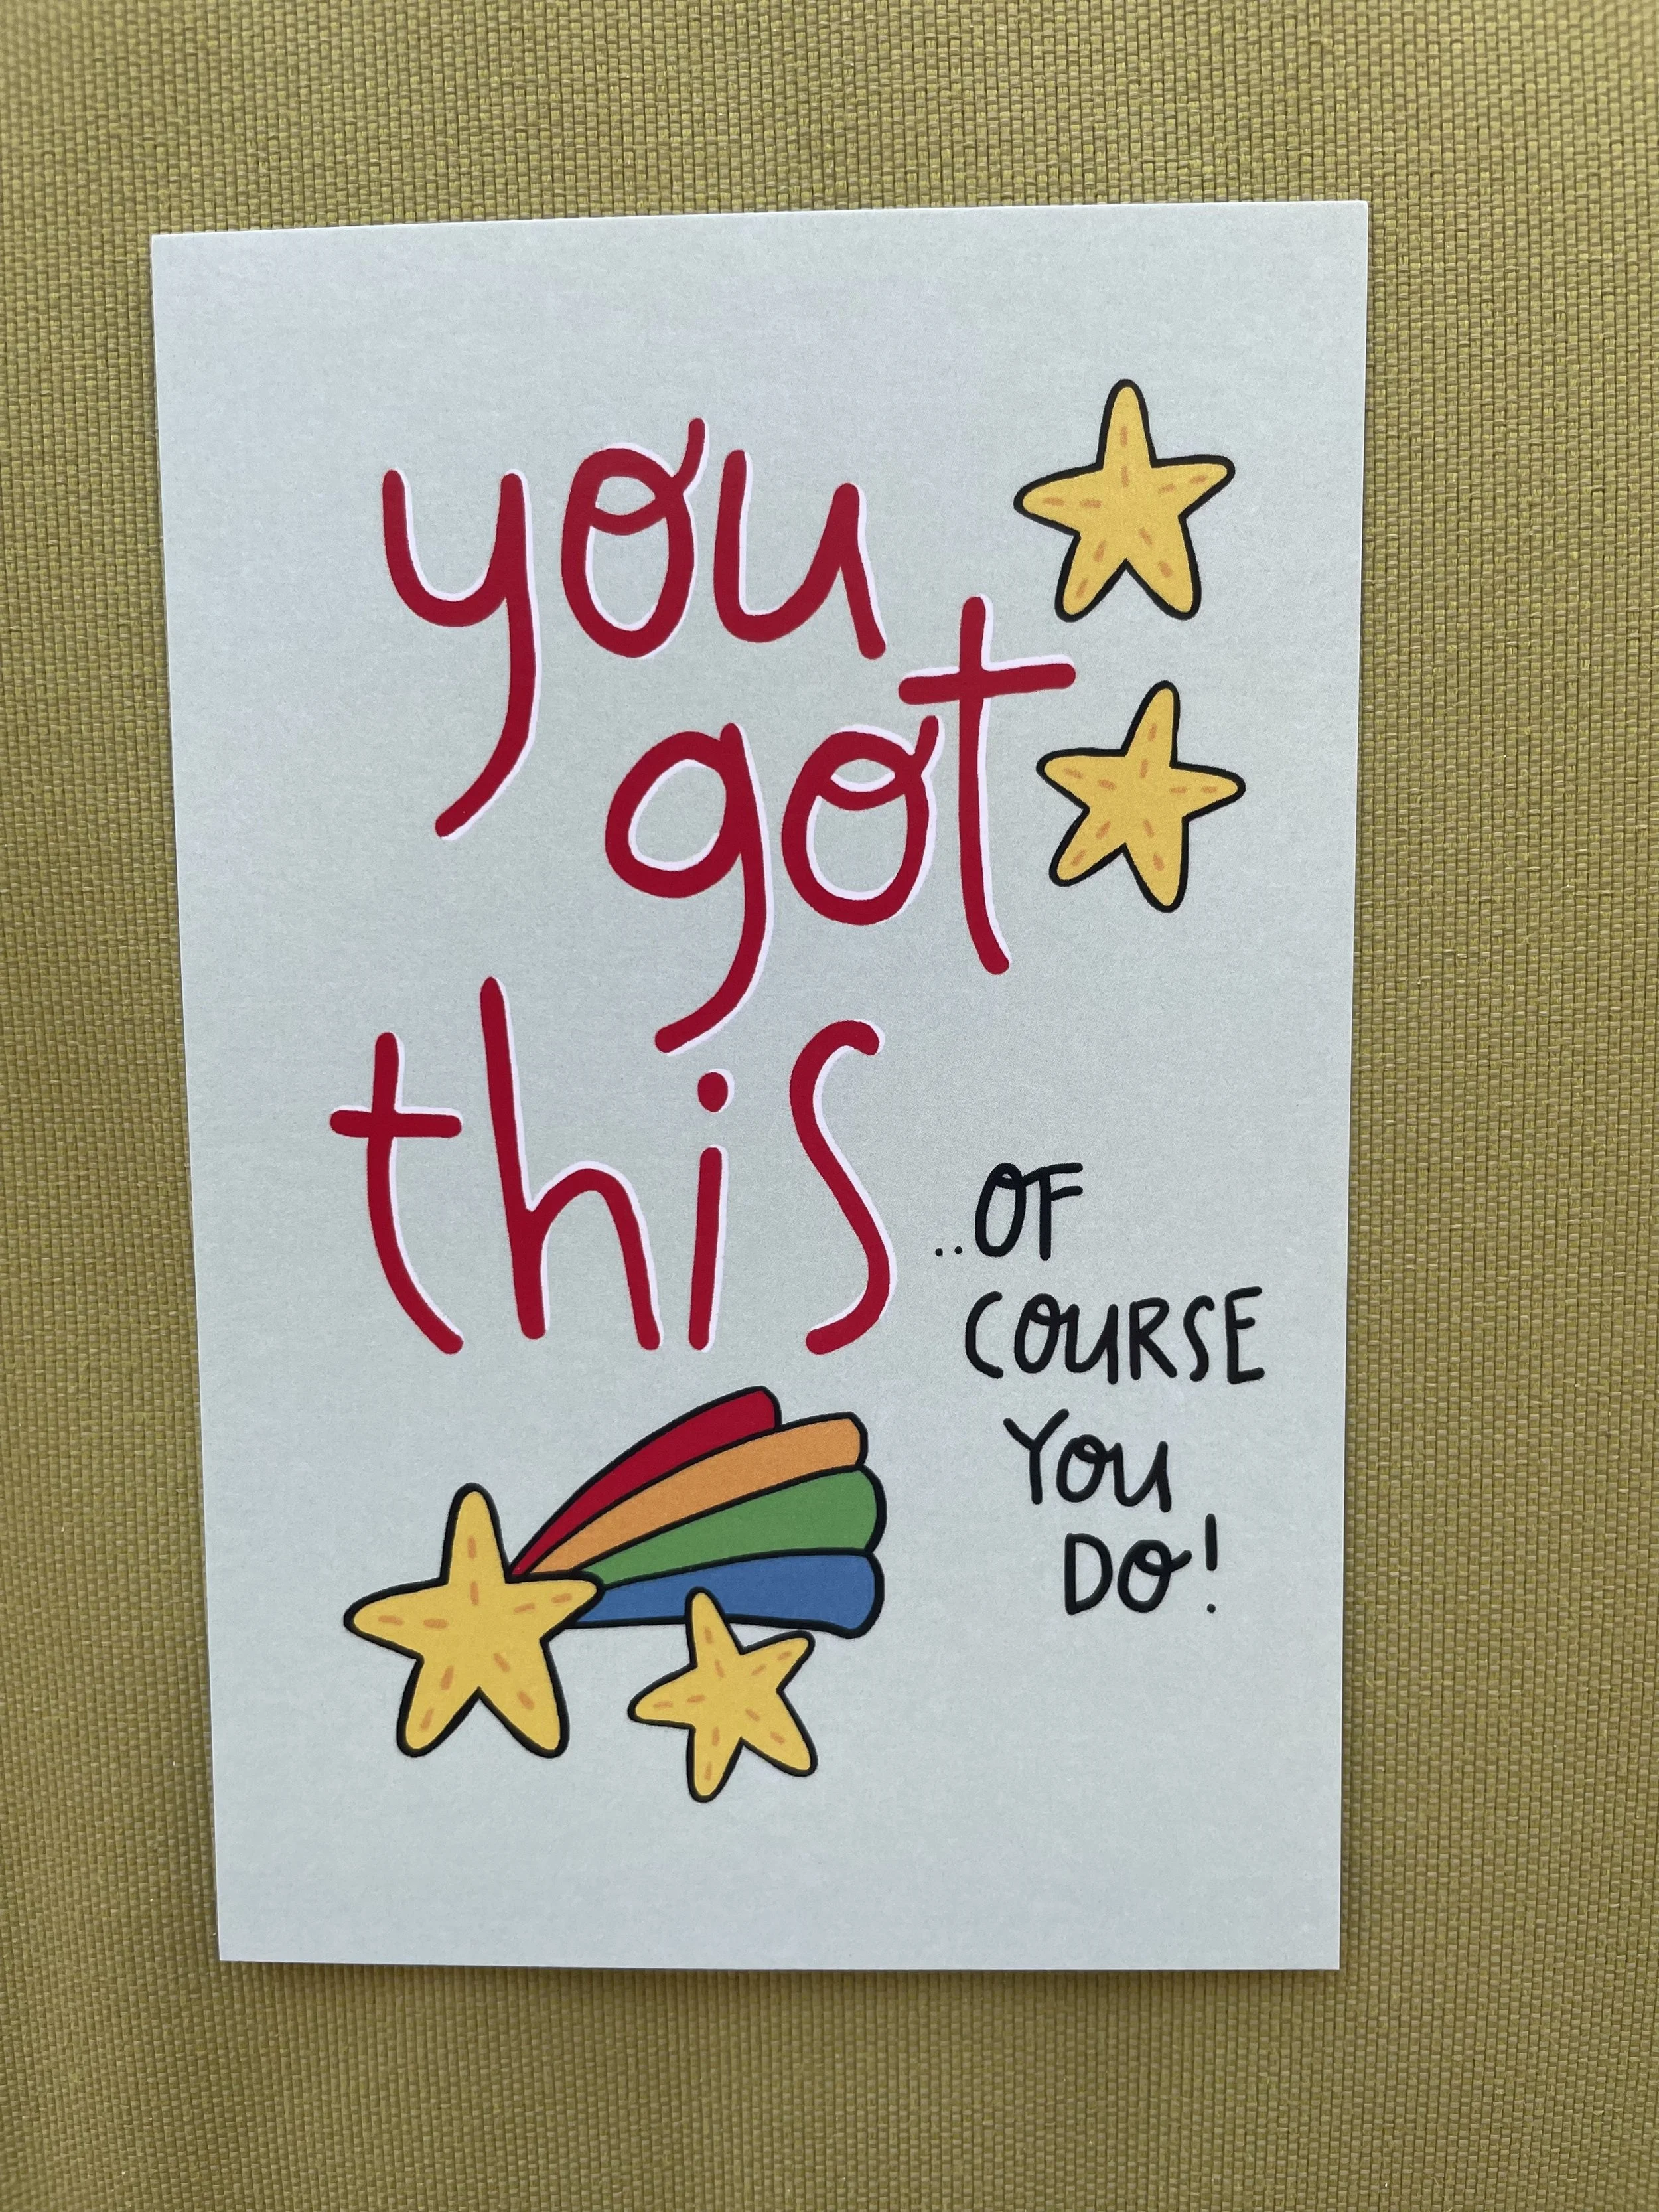 you
got
this
..OF
COURSE
YOU
DO!